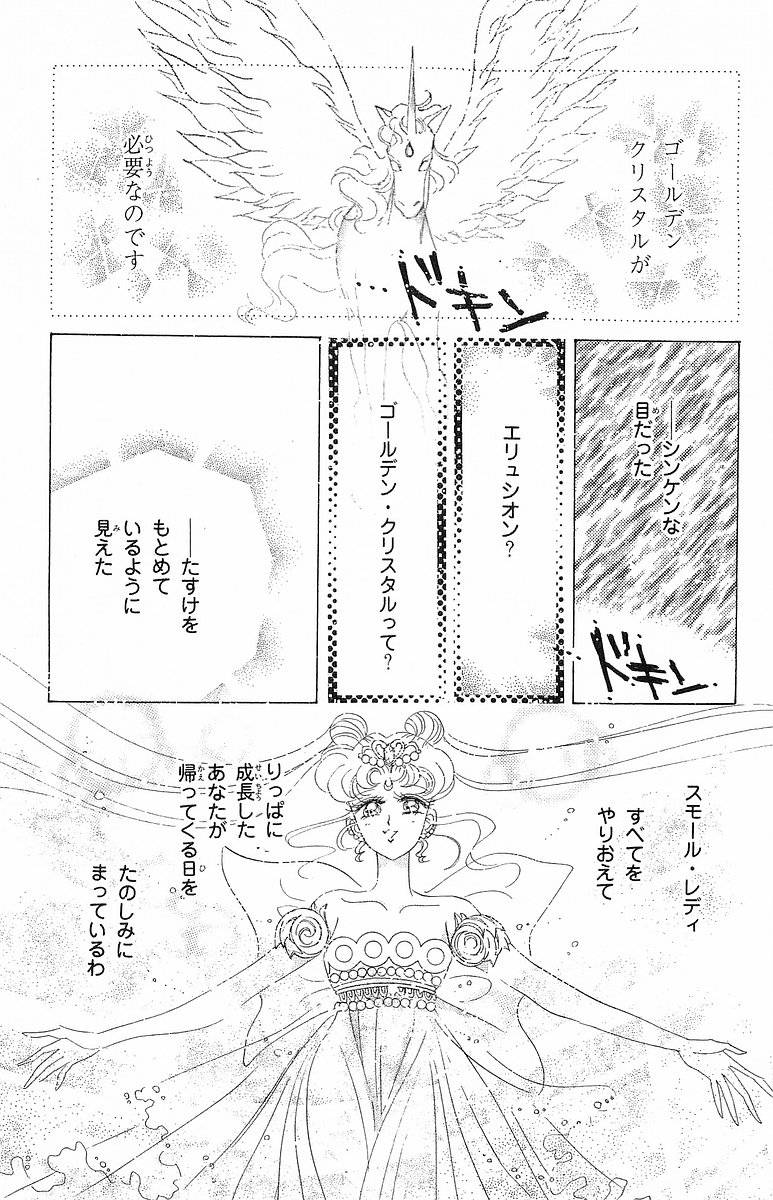 ゴールデン
クリスタルが
必要なのです
…ドキン
──シンケンな
目だった
ドキン
エリュシオン?
ゴールデン・クリスタルって?
──たすけを
もとめて
いるように
見えた
スモール・レディ
すべてを
やりおえて
りっぱに
成長した
あなたが
帰ってくる日を
たのしみに
まっているわ